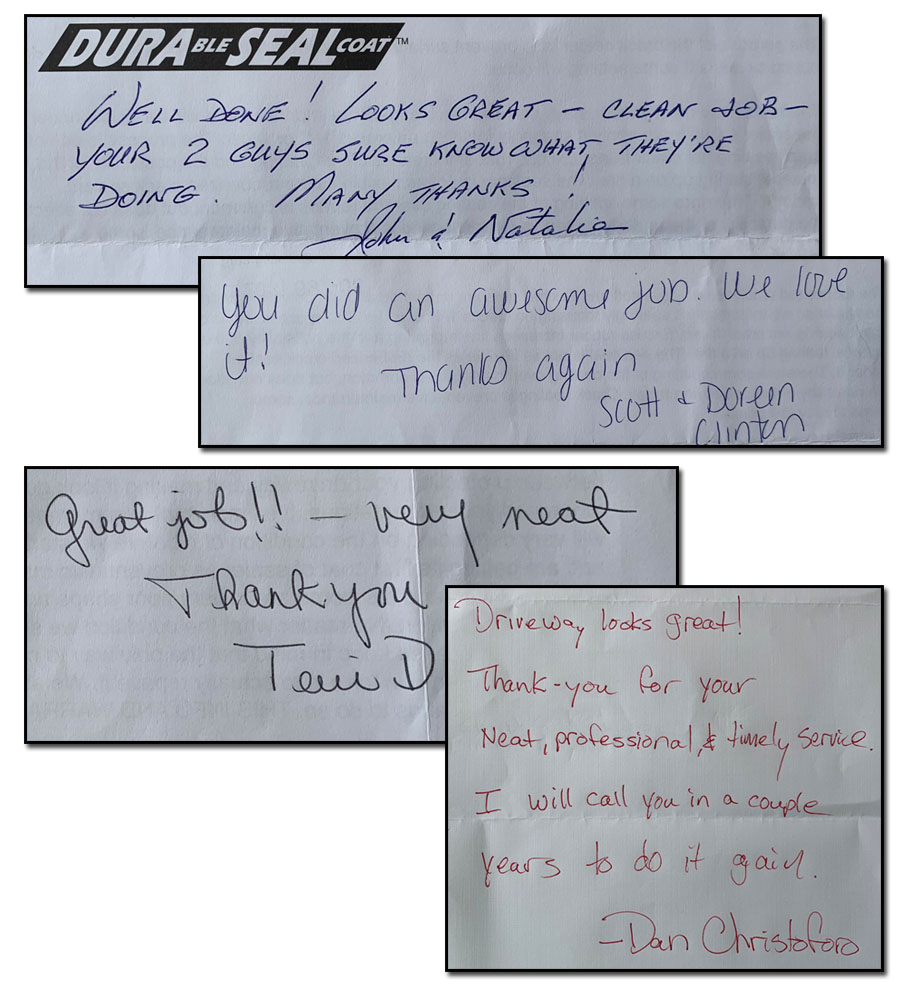 DURABLE SEALCOAT™
WELL DONE! LOOKS GREAT – CLEAN JOB –
YOUR 2 GUYS SURE KNOW WHAT THEY'RE
DOING. MANY THANKS!
John & Natalia
You did an awesome job. We love
it!
Thanks again
Scott & Doreen
Clinton
Great job!! – very neat
Thank you
Terri D
Driveway looks great!
Thank-you for your
Neat, professional, & timely service.
I will call you in a couple
years to do it again.
-Dan Christoforo